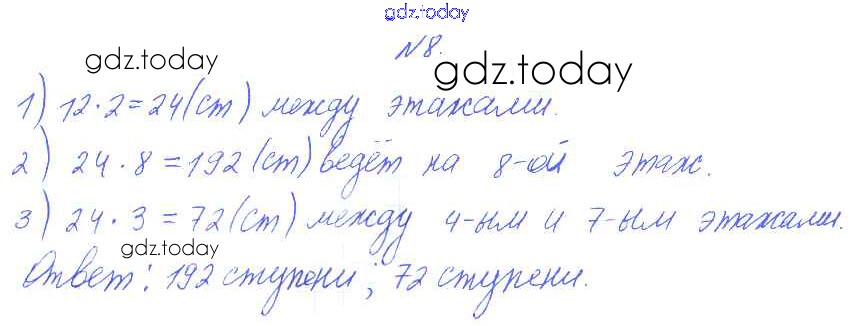 gdz.today
№8.
gdz.today
gdz.today
1) 12·2=24(ст) между этажами.
2) 24·8=192(ст) ведёт на 8-ой этаж.
3) 24·3=72(ст) между 4-ым и 7-ым этажами.
gdz.today
Ответ: 192 ступени; 72 ступени.